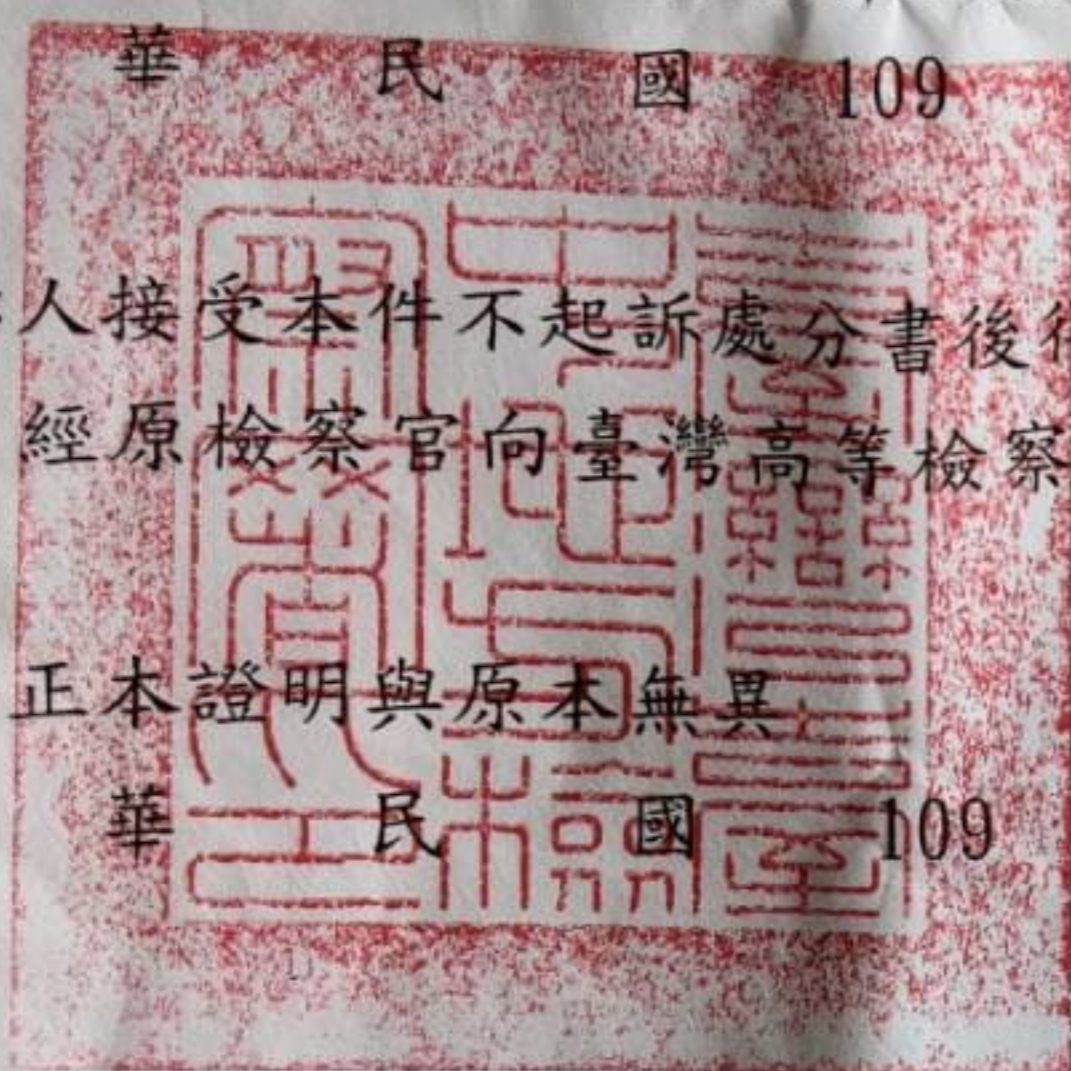 華民國109
人接受本件不起訴處分書後
經原檢察官向臺灣高等檢察
正本證明與原本無異
華民國109
臺灣臺
中地方檢
察署印